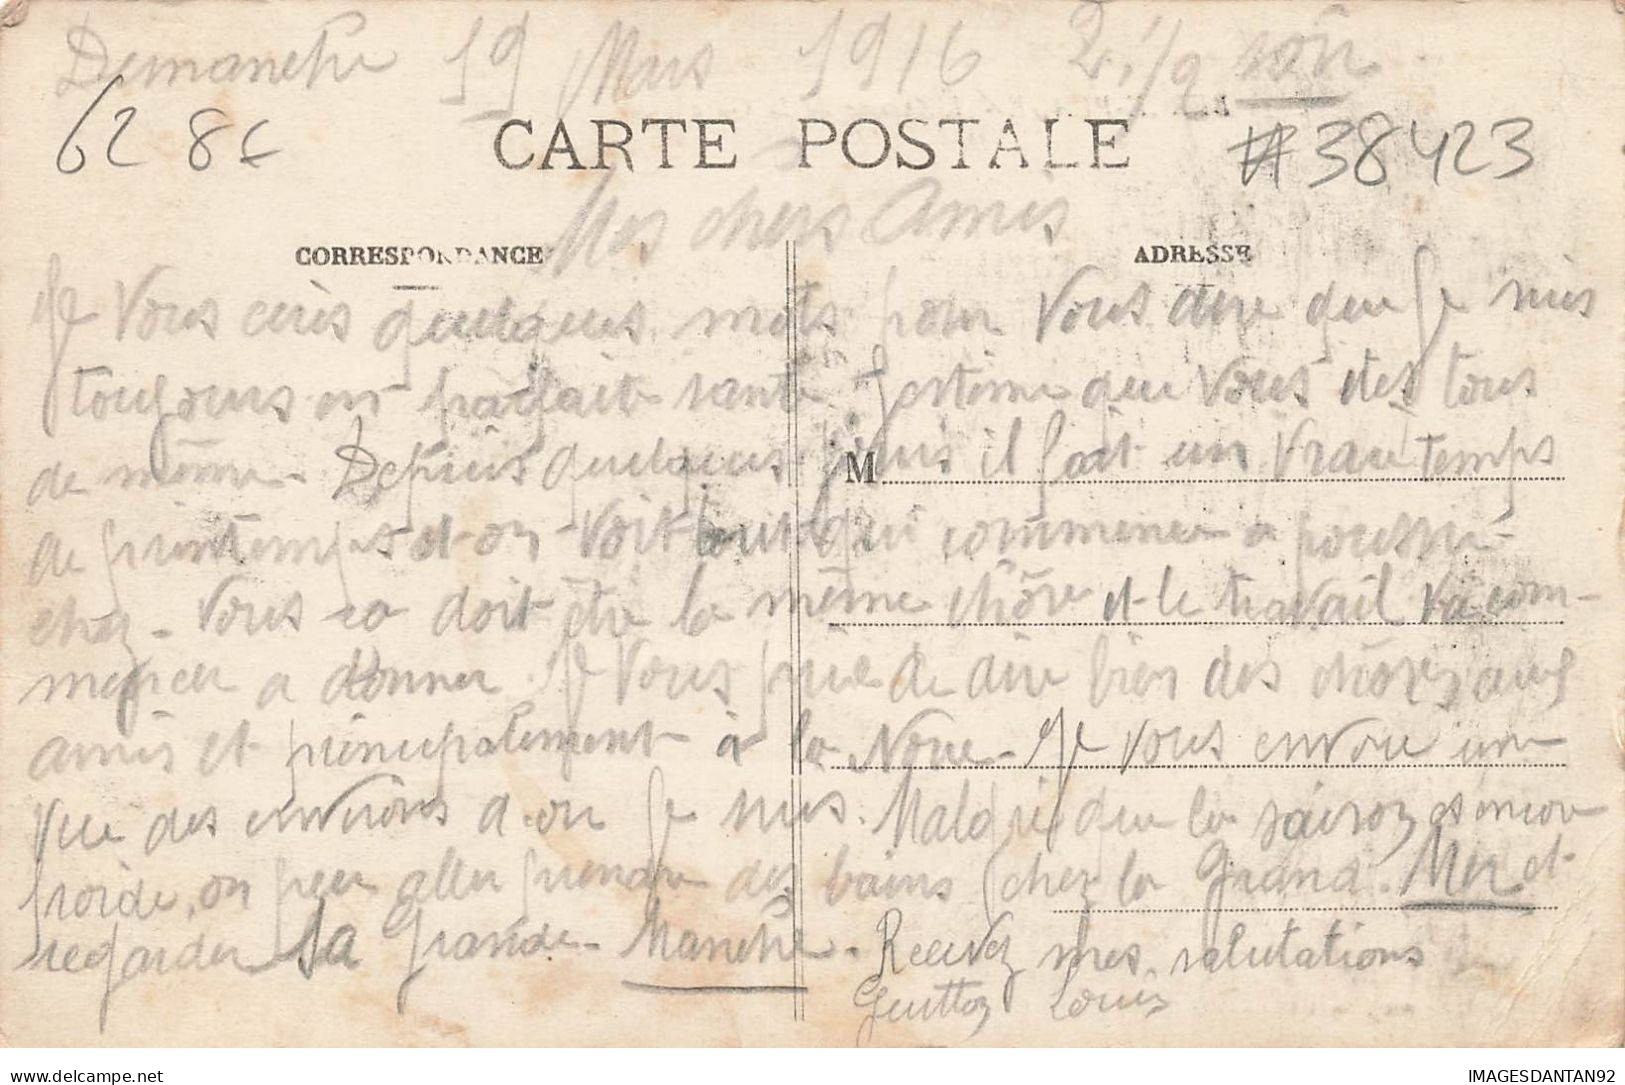 Dimanche 19 Mars 1916 2.1/2 soir
62 8€
CARTE POSTALE
#38423
Mes chers Amis
CORRESPONDANCE
ADRESSE
Je Vous ecris quelques mots pour Vous dire que Je suis
toujours en parfaite santé. J'estime que Vous etes tous
de même. Depuis quelques jours il fait un vrai temps
M
de printemps et on voit tout qui commence a pousser
chez Vous ca doit être la même chôse et le travail va com-
mencer a donner. Je Vous prie de dire bien des chôses aux
amis et principalement à la Noue. Je vous envoie une
vue des environs d.ou Je suis. Malgré que la saison est encore
froide, on peu aller prendre des bains chez la Grand. Mer et
regarder la Grande Manche. Recevez mes salutations
Guitton Louis
IMAGESDANTAN92